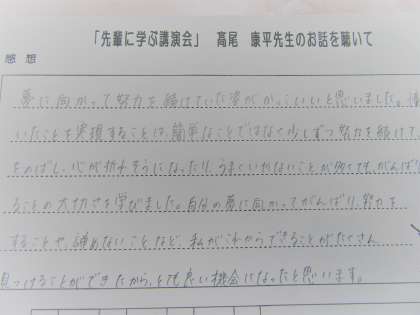 「先輩に学ぶ講演会」 髙尾 康平先生のお話を聴いて
感想
夢に向かって努力を続けていた姿がかっこいいと思いました。
いたことを実現することは、簡単なことではなく少しずつ努力を続けて、
をのばし、心が折れそうになったり、うまくいかないことが多くても、がんばり
ることの大切さを学びました。自分の夢に向かってがんばり、努力を
することや、諦めないことなど、私がこれからできることがたくさん
見つけることができたから、とても良い機会になったと思います。